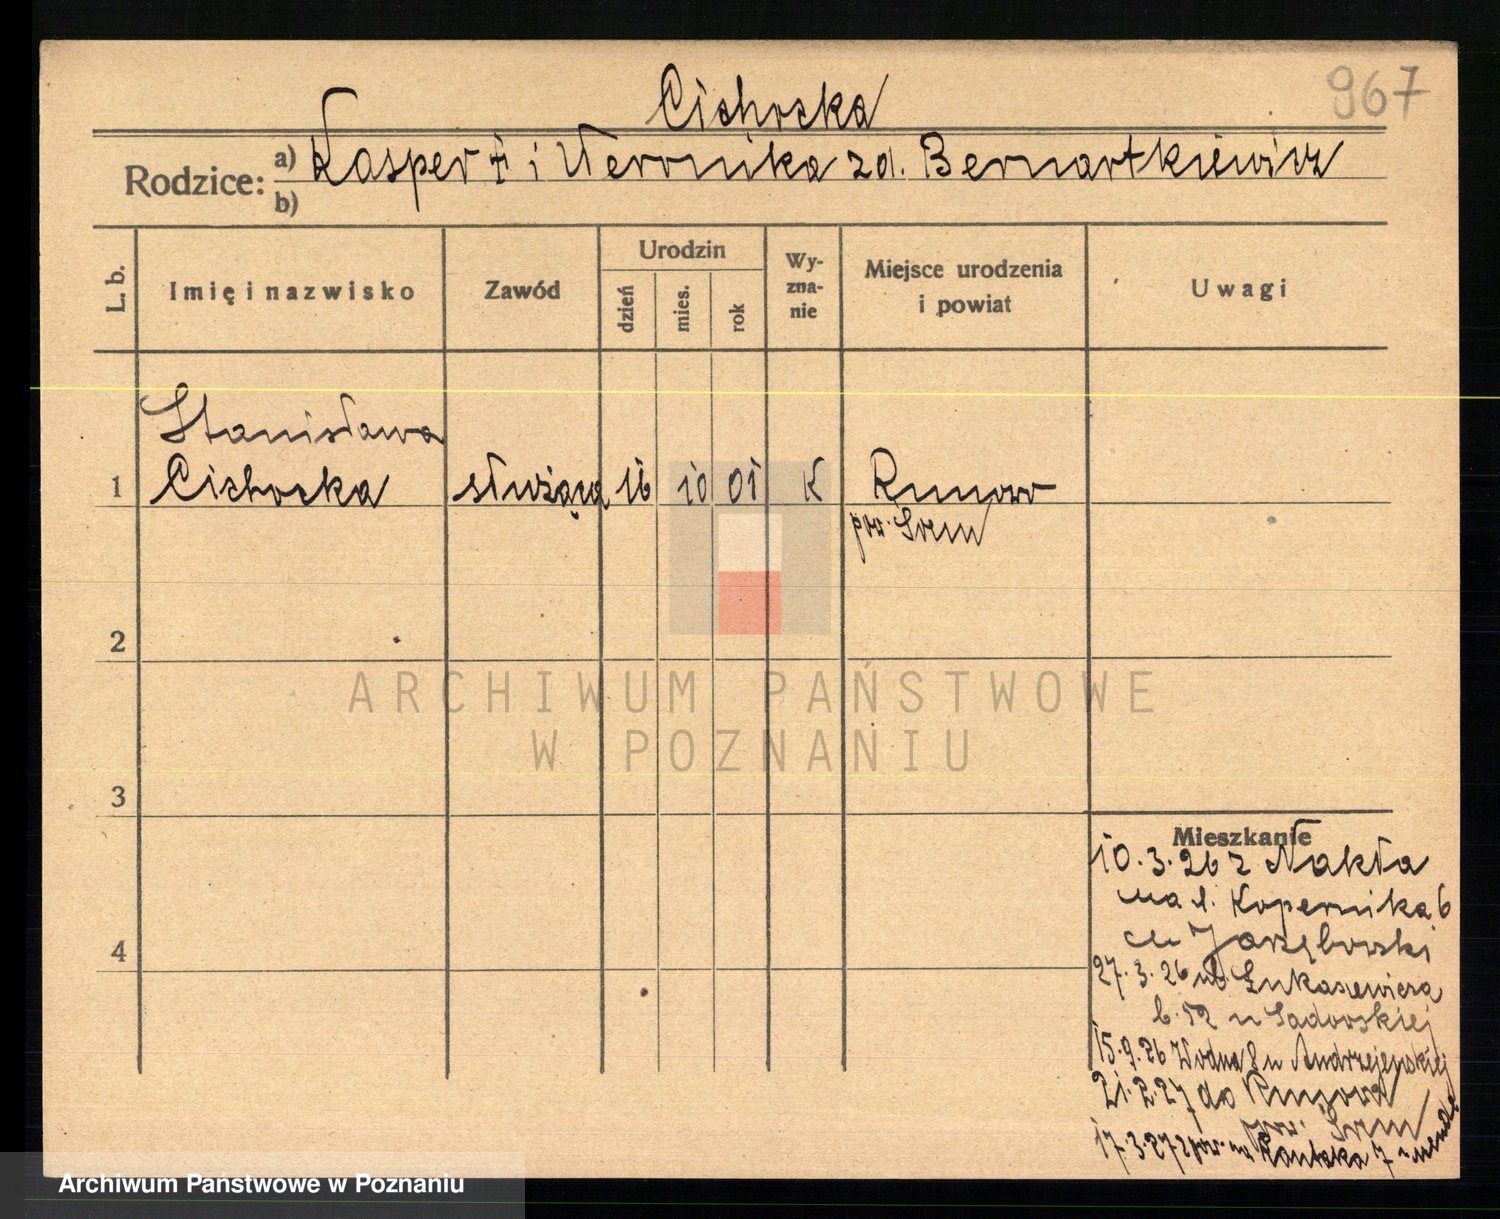 967
Cichocka
Rodzice: a) Kasper † i Weronika zd. Bernartkiewicz
b)
L. b.
Imię i nazwisko
Zawód
Urodzin
dzień
mies.
rok
Wy-
zna-
nie
Miejsce urodzenia
i powiat
Uwagi
Stanisława
1 Cichocka służąca 16 10 01 K Runowo
pow. Śrem
2
3
4
ARCHIWUM PAŃSTWOWE
W POZNANIU
Mieszkanie
10.3.26 z Nakła
na ul. Kopernika 6
Jarzębowski
27.3.26 ul. Łukaszewicza
52 u Sadowskiej
15.9.26 Wodna 8 u Andrzejewskiej
21.2.27 do Runowa
pow. Śrem
17.3.27 pow. na Kantaka 7
Archiwum Państwowe w Poznaniu